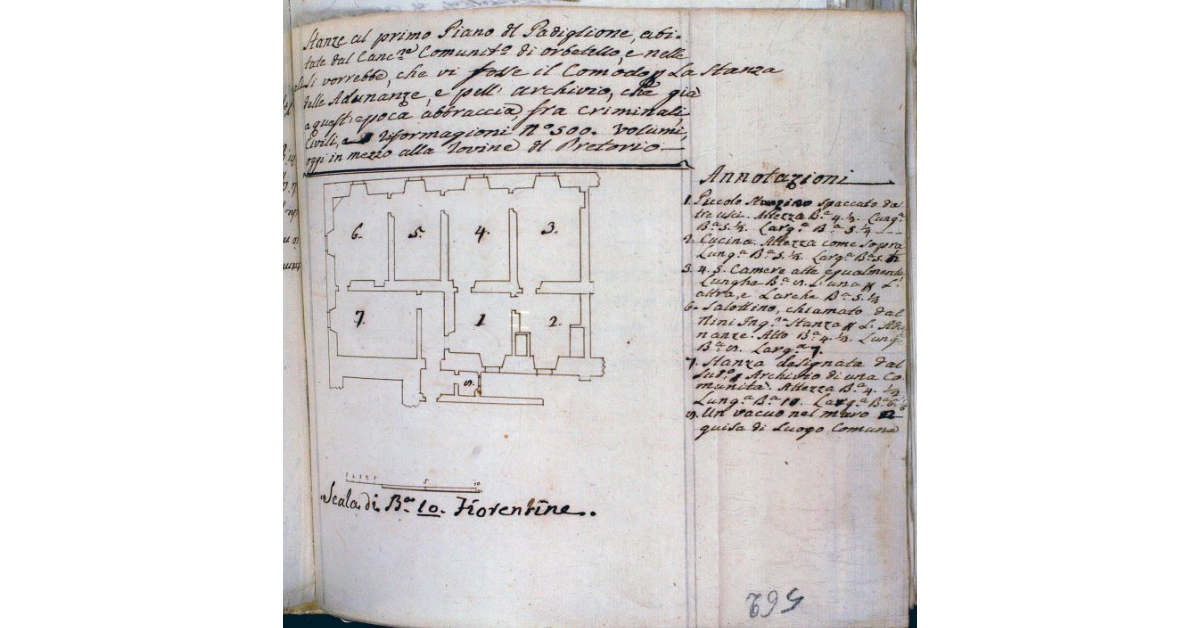 Stanze al primo Piano dl Padiglione, abi-
tate dal Canc.re Comunit.o di orbetello, e nelle
li si vorrebbe, che vi fosse il Comodo p La Stanza
delle Adunanze, e pell' archivio, che già
a quast' epoca abbraccia, fra criminali,
Civili, e Riformagioni N.o 500. Volumi,
oggi in mezzo alla Rovine dl Pretorio
Annotazioni
1. Piccolo Stanzino spaccato da
tre usci. Altezza B.a 4. ½. Lung.a
B.a 5. ½. Larg.a B.a 5. ½
2. Cucina. Altezza come sopra
Lung.a B.a 5. ½ Larg.a B.a 5. ½
3. 4. 5. Camere alte egualmente,
Lunghe B.a L'una p L'
altra, e Larghe B.a 5. ½
6. Salottino, chiamato dal
Nini Ing.re Stanza p L' Adu-
nanze. Alto B.a 4. ½. Lung.a
B.a Larg.a 7.
7. Stanza designata dal
Sud.o p Archivio di una Co-
munità. Altezza B.a 4. ½
Lung.a B.a 10. Larg.a B.a 6. ½
Un vacuo nel muro a
guisa di Luogo Comune
6. 5. 4. 3.
7. 1. 2.
5 10
Scala di B.a 10. Fiorentine.
562